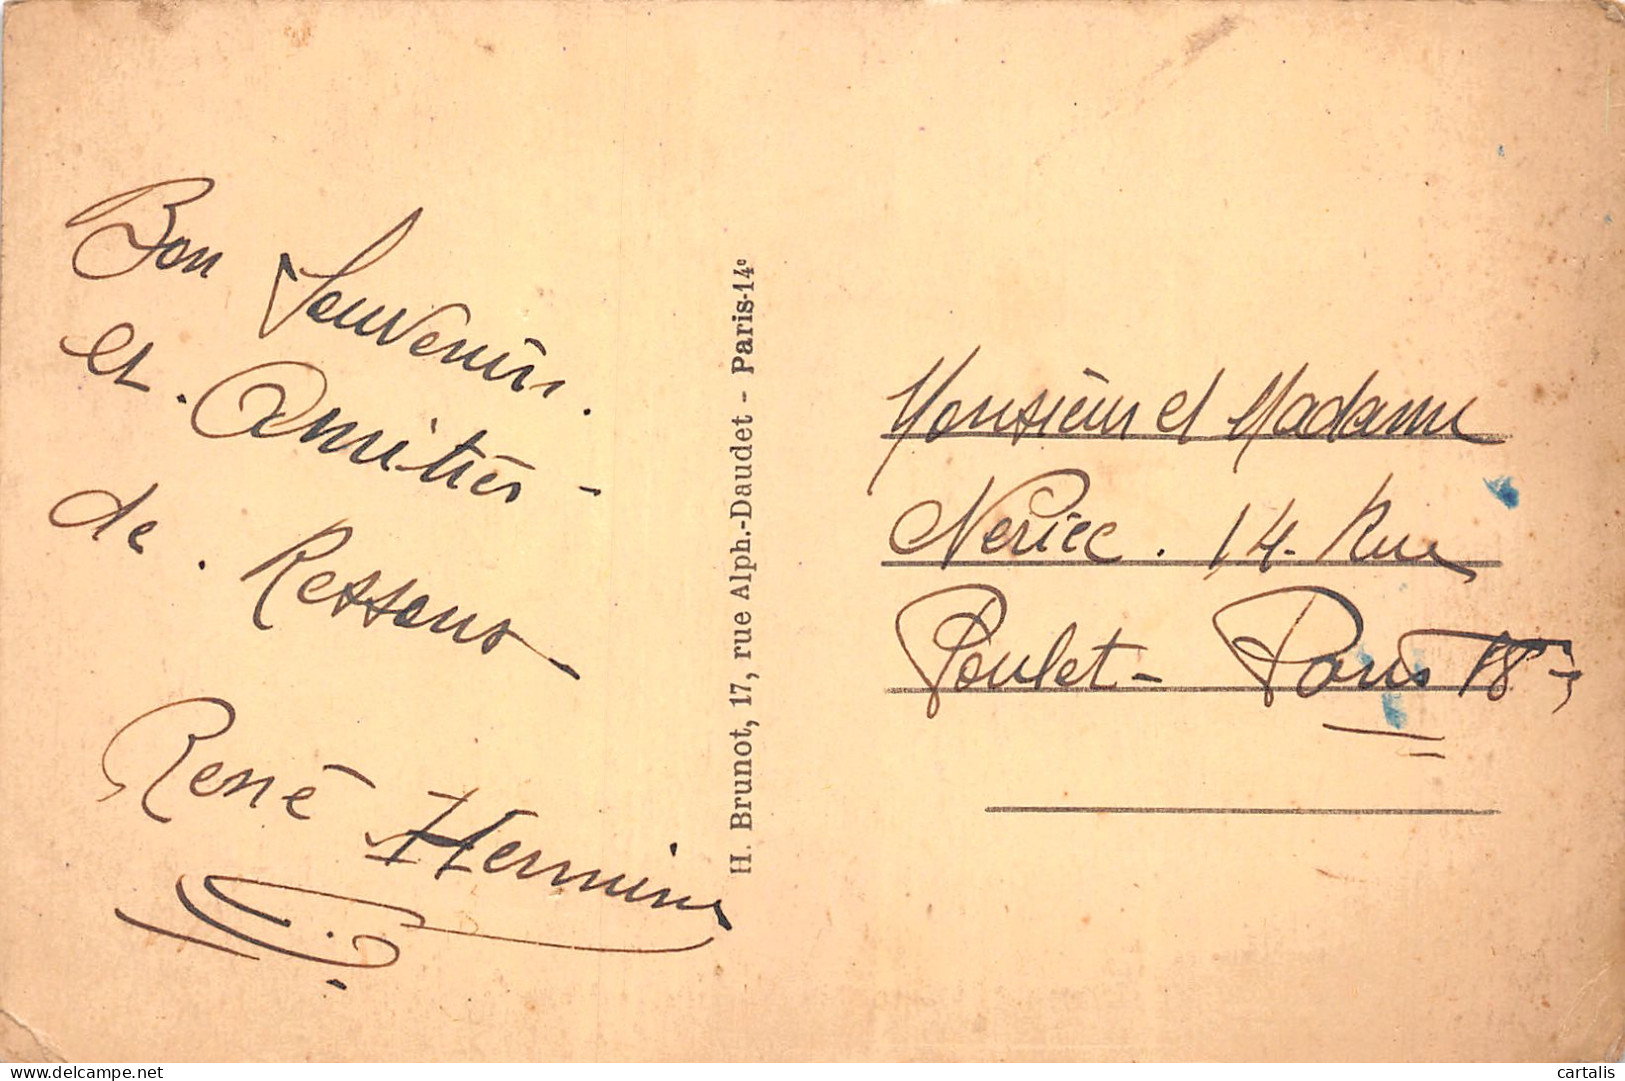 Bon Souvenir.
et. Amitiés -
de. Ressons
René Hermine
H. Brunot, 17, rue Alph.-Daudet - Paris-14e
Monsieur et Madame
Neriec. 14. Rue
Poulet - Paris 18
cartalis